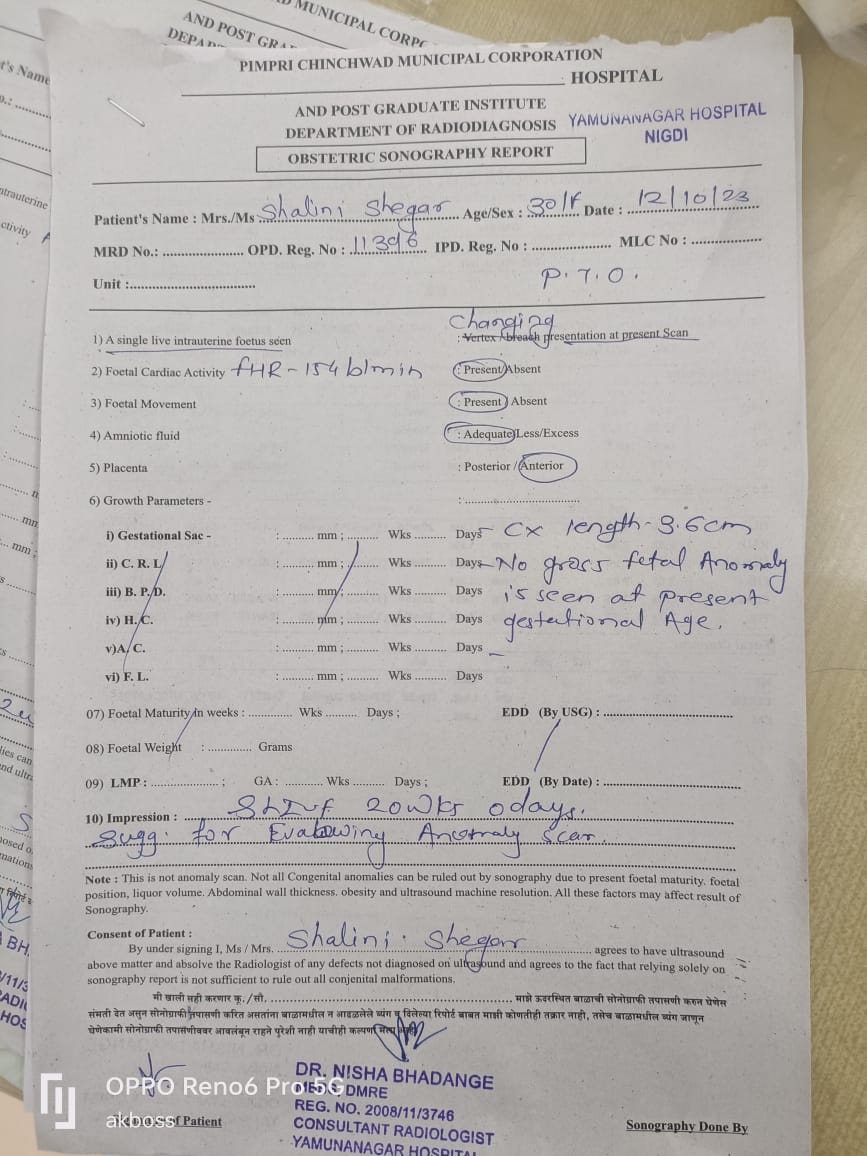 MUNICIPAL CORPO
AND POST GRA
DEPAR
t's Name
ntrauterine
ctivity
PIMPRI CHINCHWAD MUNICIPAL CORPORATION
HOSPITAL
AND POST GRADUATE INSTITUTE
DEPARTMENT OF RADIODIAGNOSIS YAMUNANAGAR HOSPITAL
NIGDI
OBSTETRIC SONOGRAPHY REPORT
Patient's Name : Mrs./Ms Shalini Shegar Age/Sex : 30/F Date : 12/10/23
MRD No.: ...................... OPD. Reg. No : 11396 IPD. Reg. No : ..................... MLC No : ...................
Unit :..................................
P.T.O.
Changing
1) A single live intrauterine foetus seen : Vertex /breach presentation at present Scan
2) Foetal Cardiac Activity FHR - 154 b/min : Present/Absent
3) Foetal Movement : Present / Absent
4) Amniotic fluid : Adequate/Less/Excess
5) Placenta : Posterior / Anterior
6) Growth Parameters - : ................................
i) Gestational Sac - : ......... mm ; ......... Wks ......... Days - Cx length - 3.6cm
ii) C. R. L : ......... mm ; ......... Wks ......... Days - No gross fetal Anomaly
iii) B. P. D. : ......... mm ; ......... Wks ......... Days is seen at present
iv) H. C. : ......... mm ; ......... Wks ......... Days gestational Age.
v)A. C. : ......... mm ; ......... Wks ......... Days
vi) F. L. : ......... mm ; ......... Wks ......... Days
07) Foetal Maturity in weeks : ............. Wks ......... Days ; EDD (By USG) : .....................................
08) Foetal Weight : ............. Grams
09) LMP : ................... ; GA : ........... Wks ......... Days ; EDD (By Date) : .....................................
10) Impression : SLIUF 20wks 0days.
Sugg. for Anomaly scan.
Note : This is not anomaly scan. Not all Congenital anomalies can be ruled out by sonography due to present foetal maturity. foetal
position, liquor volume. Abdominal wall thickness. obesity and ultrasound machine resolution. All these factors may affect result of
Sonography.
Consent of Patient :
By under signing I, Ms / Mrs. Shalini . Shegar agrees to have ultrasound
above matter and absolve the Radiologist of any defects not diagnosed on ultrasound and agrees to the fact that relying solely on
sonography report is not sufficient to rule out all conjenital malformations.
मी खाली सही करणार कु./सौ. ........................................................ माझे ऊवरस्थित बाळाची सोनोग्राफी तपासणी करुन घेणेस
संमती देत असुन सोनोग्राफी तपासणी करित असतांना बाळामधील न आढळलेले व्यंग व दिलेल्या रिपोर्ट बाबत माझी कोणतीही तक्रार नाही, तसेच बाळामधील व्यंग जाणून
घेणेकामी सोनोग्राफी तपासणीवर आवलंबून राहने पुरेशी नाही याचीही कल्पणा
DR. NISHA BHADANGE
DMRE
REG. NO. 2008/11/3746
CONSULTANT RADIOLOGIST
YAMUNANAGAR HOSPITAL
of Patient
Sonography Done By
OPPO Reno6 Pro 5G
akboss